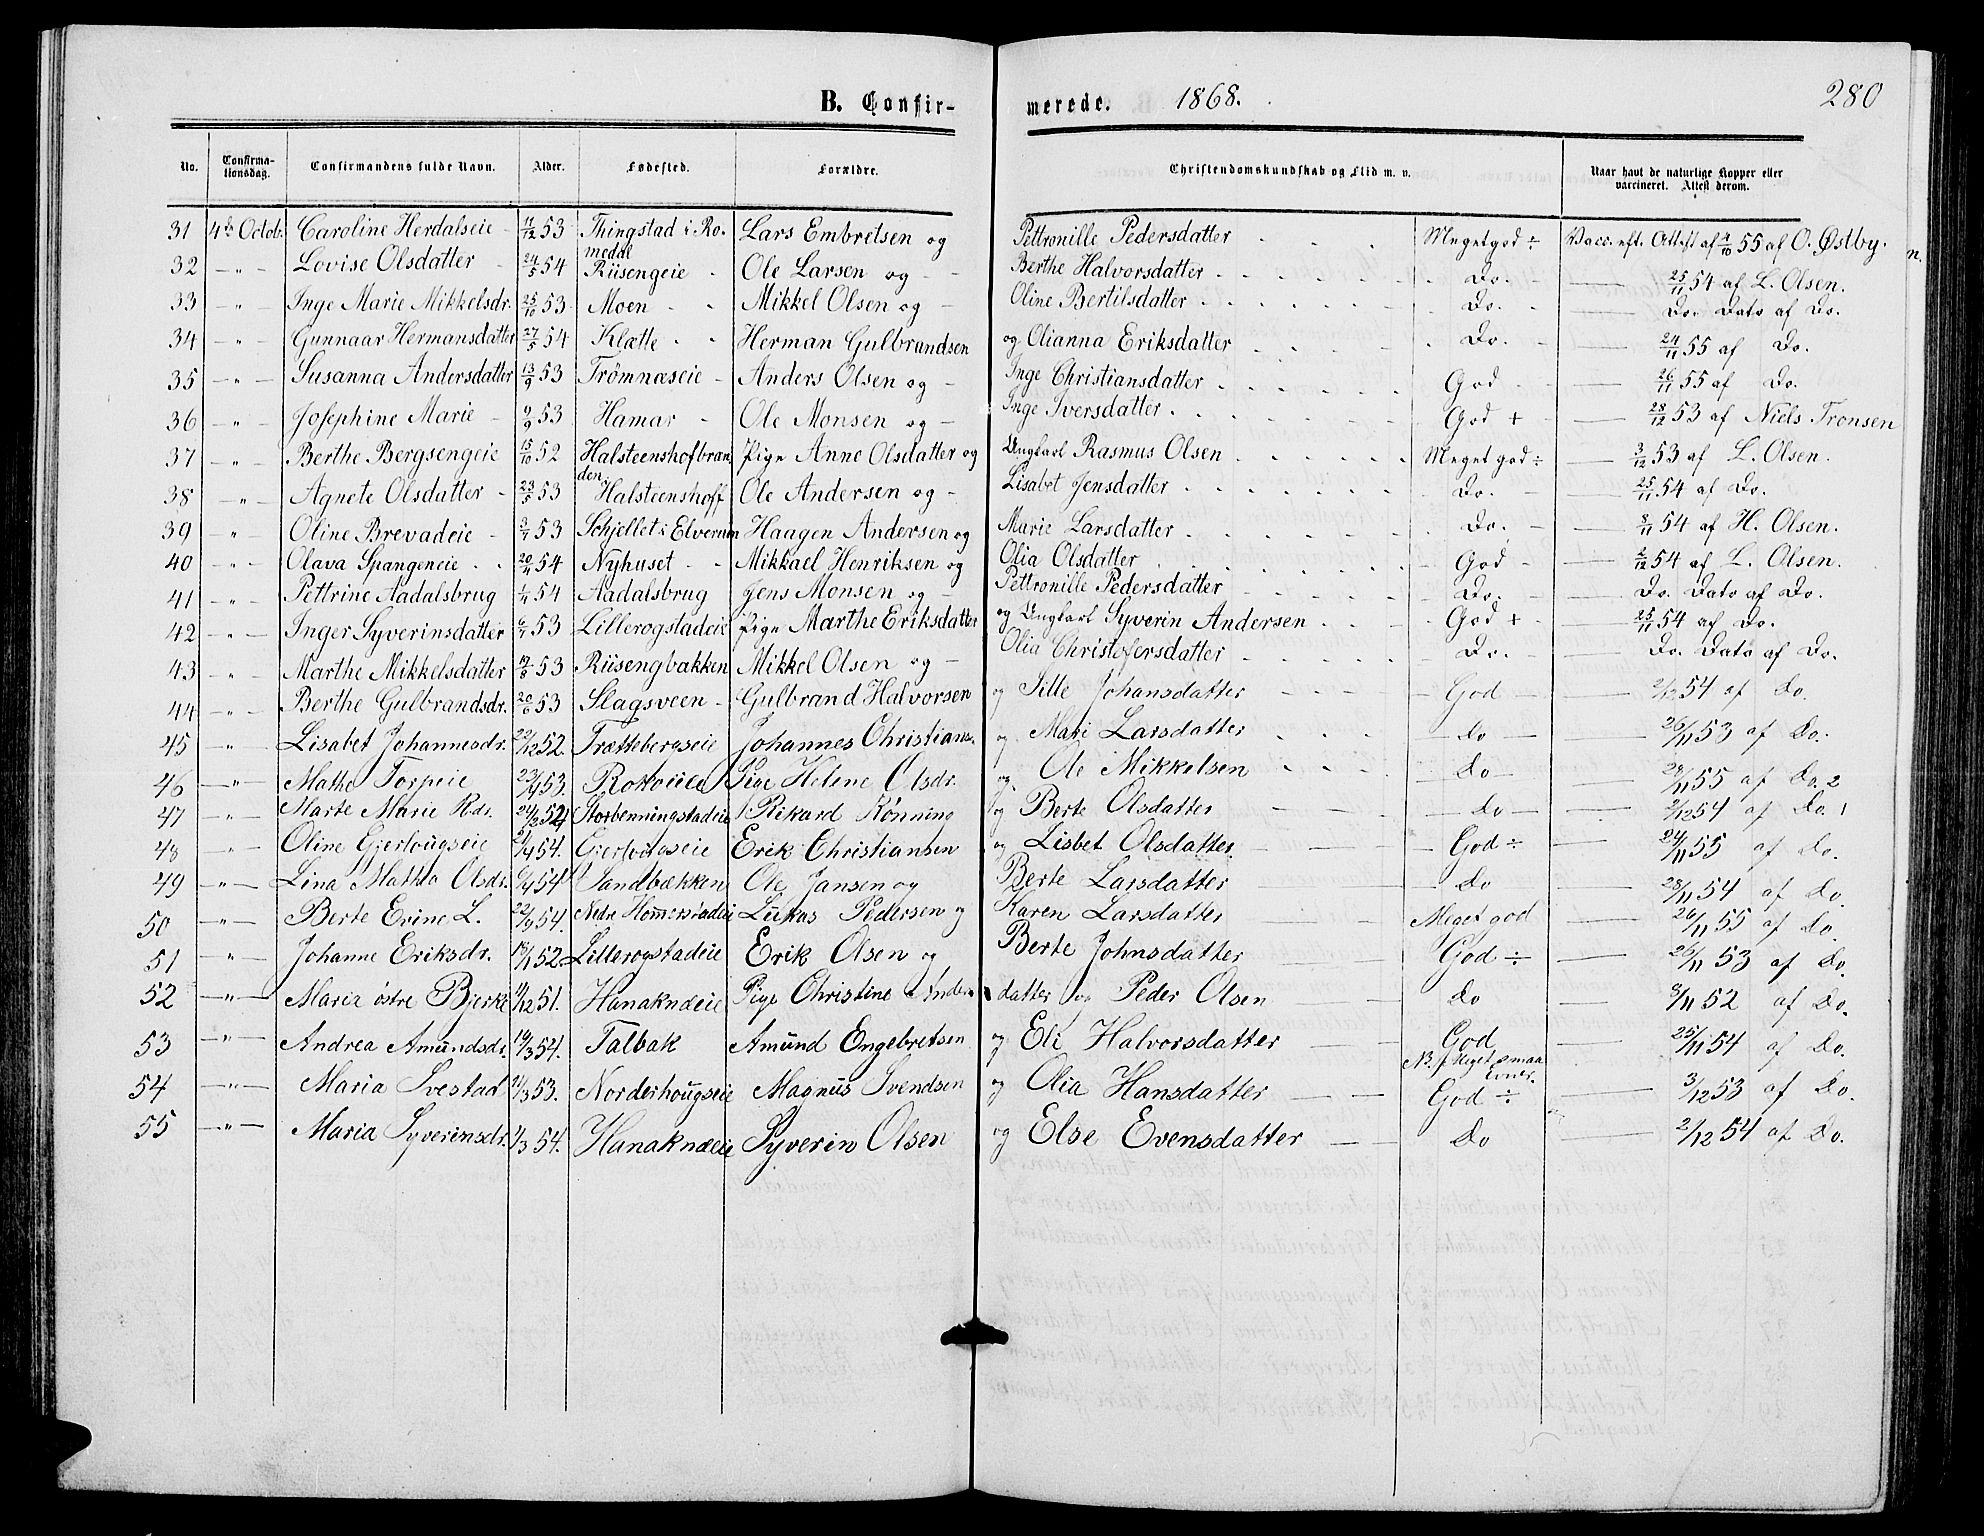 B. Confir-merede. 1868. 280
No. Confirma-tionsdag. Confirmandens fulde Navn. Alder. Fødested. Forældre. Christendomskundskab og Flid m. v. Naar havt de naturlige Kopper eller vaccineret. Attest derom.
31 4de Octob. Caroline Herdalseie - 17/12 53 Thingstad i Romedal Lars Embretsen og Pettronille Pedersdatter Megetgod ÷ Vacc. eft. Attest af 4/10 55 af O. Østbyn.
32 - " - Lovise Olsdatter - 24/5 54 Riisengeie - Ole Larsen og - Berthe Halvorsdatter Do. 25/11 54 af L. Olsen.
33 - " - Inge Marie Mikkelsdr. 25/10 53 Moen - - Mikkel Olsen og - Oline Bertilsdatter Do. Do. Dato af Do.
34 - " - Gunnaar Hermansdatter 27/5 54 Klætte - - Herman Gulbrandsen og Olianna Eriksdatter Do. 24/11 55 af Do.
35 - " - Susanna Andersdatter 13/9 53 Trömnæseie - Anders Olsen og - Inge Christiansdatter God 26/11 55 af Do.
36 - " - Josephine Marie - 9/9 53 Hamar - Ole Monsen og - Inge Iversdatter God + 28/12 53 af Niels Tronsen
37 - " - Berthe Bergsengeie 15/10 52 Halsteenshofbranden Pige Anne Olsdatter og Ungkarl Rasmus Olsen Meget god ÷ 3/12 53 af L. Olsen.
38 - " - Agnete Olsdatter - 23/5 53 Halsteenshoff Ole Andersen og - Lisabet Jensdatter Do. 25/11 54 af Do.
39 - " - Oline Brevadeie - 3/7 53 Schjellet i Elverum Haagen Andersen og Marie Larsdatter Do. 8/11 54 af H. Olsen.
40 - " - Olava Spangeneie 20/4 54 Nyhuset - - Mikkael Henriksen og Olia Olsdatter God - 2/12 54 af L. Olsen.
41 - " - Pettrine Aadalsbrug 1/4 54 Aadalsbrug Jens Monsen og - Pettronille Pedersdatter Do. Do. Dato af Do.
42 - " - Inger Syverinsdatter 6/7 53 Lillerogstadeie Pige Marthe Eriksdatter og Ungkarl Syverin Andersen God + 25/11 54 af Do.
43 - " - Marthe Mikkelsdatter 17/8 53 Riisengbakken Mikkel Olsen og - Olia Christofersdatter Do. Do. Dato af Do.
44 - " - Berthe Gulbrandsdr. 20/6 53 Slagsveen - Gulbrand Halvorsen og Sitte Johansdatter God 2/12 54 af Do.
45 - " - Lisabet Johannesdr. 22/12 52. Trættebergseie Johannes Christians. og Mari Larsdatter do 26/11 53 af Do.
46 - " - Mathea Torpeie 23/4 53. Rokoeie Pige Helene Olsdr. og Ole Mikkelsen do 29/11 55 af Do. 2
47 - " - Marte Marie Rdr. 24/2 54 Storbenningstadeie Rikard Rønning og Berte Olsdatter do 2/12 54 af Do. 1
48 - " - Oline Gjerlougseie 21/4 54. Gjerlougseie Erik Christiansen og Lisbet Olsdatter God ÷ 24/11 55 af Do.
49 - " - Lina Mathea Olsdr. 6/4 54 Sandbækken Ole Jansen og Berte Larsdatter do 28/11 54 af Do.
50 - " - Berte Erine L. 22/9 54. Nedre Hommerstadeie Lukas Pedersen og Karen Larsdatter Meget god 26/11 55 af Do.
51 - " - Johanne Eriksdr. 13/11 52. Lillerogstadeie Erik Olsen og Berte Johnsdatter God ÷ 26/11 53 af Do.
52 - " - Maria østre Bjerke 11/12 51. Hanaknæeie Pige Christine Andersdatter og Peder Olsen do 8/11 52 af Do.
53 - " - Andrea Amundsdr. 14/3 54. Talbak Amund Engebretsen og Eli Halvorsdatter God 25/11 54 af Do.
NB. Meget smaa Evner.
54 - " - Maria Svestad 21/3 53. Norderhougseie Magnus Svendsen og Olia Hansdatter God ÷ 3/12 53 af Do.
55 - " - Maria Syverinsdr. 1/3 54. Hanaknæeie Syverin Olsen og Else Evensdatter Do 2/12 54 af Do.